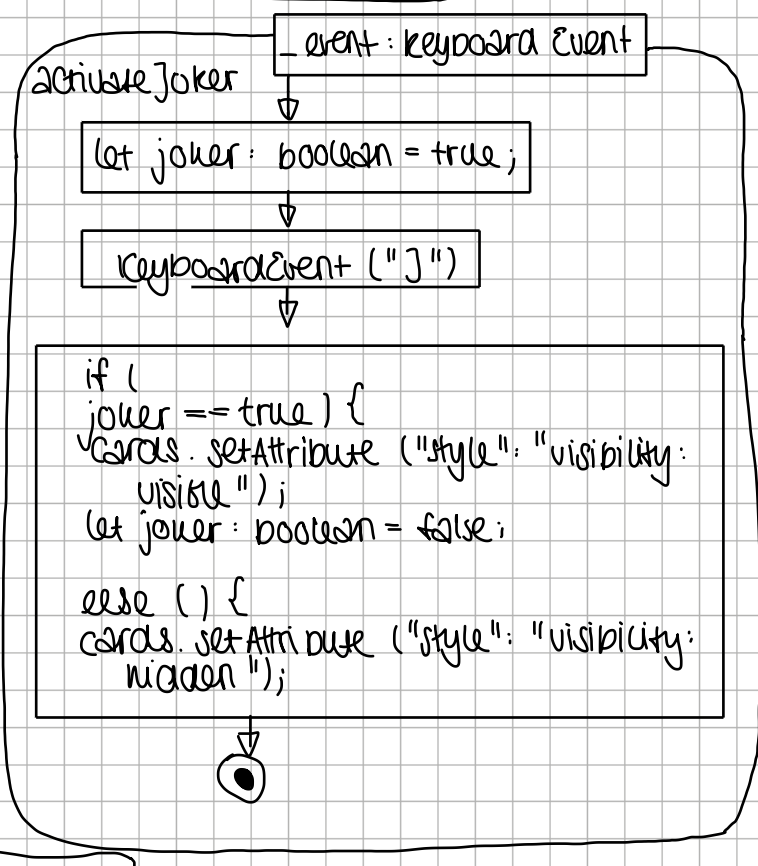 _event: Keyboard Event
activateJoker
let joker: boolean = true;
KeyboardEvent ("J")
if (
joker == true) {
cards. setAttribute ("style": "visibility:
visible");
let joker: boolean = false;
else () {
cards. setAttribute ("style": "visibility:
hidden");